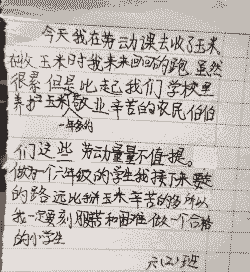 今天我在劳动课去收了玉米,
在收玉米时我来来回回的跑,虽然
很累但是比起我们学校里
养护玉米敬业辛苦的农民伯伯
一年多的
们这些劳动量量不值一提。
做为一个六年级的学生我接下来要走
的路远比掰玉米辛苦的多所以
我一定要刻服苦和困难做一个合格
的小学生
六(2)班